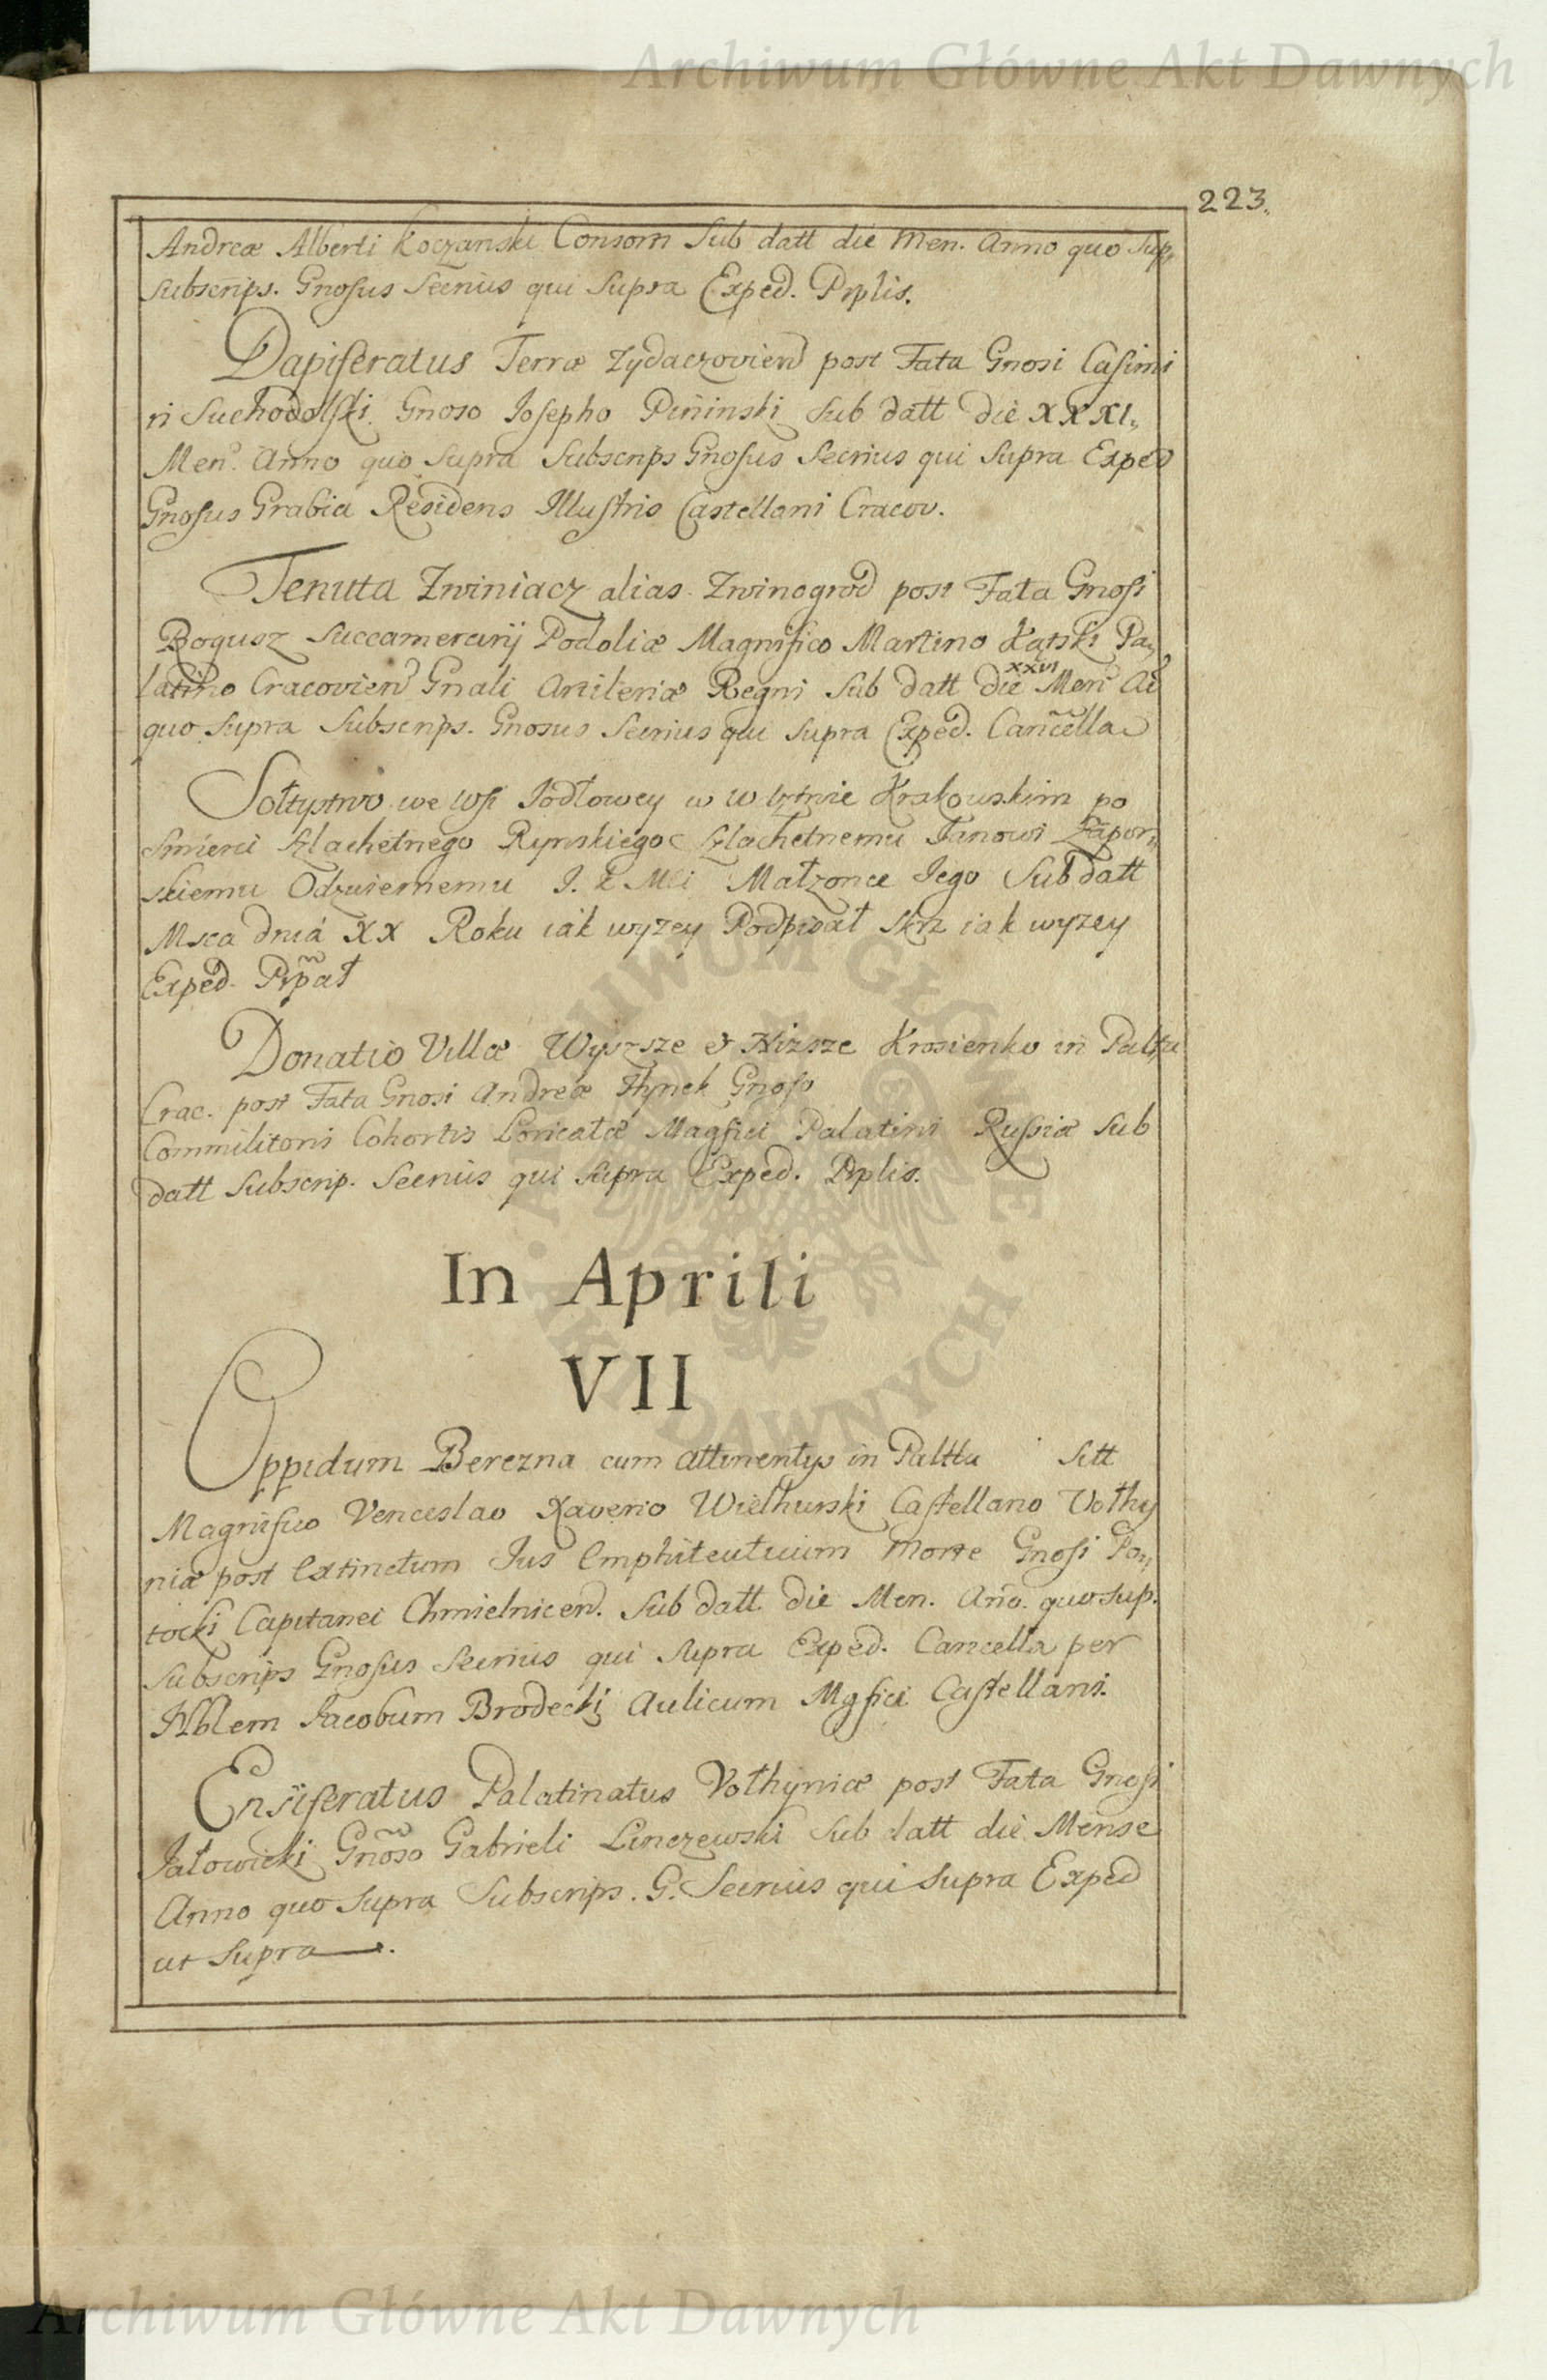 Archiwum Główne Akt Dawnych
223.
Andreæ Alberti Koczanski Consorti Sub datt die Men. Anno quo Sup,
Subscrips. Gnosus Secrius qui Supra Exped. Prplis.
Dapiferatus Terræ Zydaczovien post Fata Gnosi Casimi
ri Suchodolski Gnoso Iosepho Pininski Sub datt die XXXI,
Men. Anno quo Supra Subscrips Gnosus Secrius qui Supra Exped
Gnosus Grabia Residens Illustris Castellani Cracov.
Tenuta Zwiniacz alias Zwinogrod post Fata Gnosi
Bogusz Succamerarij Podoliæ Magnifico Martino Kątski Pa,,
latino Cracovien Gnali Artileriæ Regni Sub datt die XXVI Men Ao
quo Supra Subscrips. Gnosus Secrius qui Supra Exped. Cancella
Sołtystwo we Wsi Jodłowey w Wdztwie Krakowskim po
Smierci Szlachetnego Rynskiego Szlachetnemu Janowi Zapor,,
skiemu Odzwiernemu J. K Mci Małzonce Iego Sub datt
Msca dnia XX Roku iak wyzey Podpisał Skrz iak wyzey
Exped. Prpał
Donatio Villæ Wyszsze & Nizsze Krosienko in Palttu
Crac. post Fata Gnosi Andreæ Hynek Gnoso
Commilitoni Cohortis Loricatæ Magfici Palatini Russiæ Sub
datt Subscrip. Secrius qui Supra Exped. Prplis.
In Aprili
VII
Oppidum Berezna cum attinentys in Palttu Sitt
Magnifico Venceslao Xaverio Wielhurski Castellano Vołhy
niæ post extinctum Ius Emphiteuticum Morte Gnosi Po,,
tocki Capitanei Chmielnicen. Sub datt die Men. Ano. quo Sup.
Subscrips Gnosus Secrius qui Supra Exped. Cancella per
Nblem Jacobum Brodecki Aulicum Mgfici Castellani.
Ensiferatus Palatinatus Vołhyniæ post Fata Gnosi
Jałowicki Gnoso Gabrieli Linczewski Sub datt die Mense
Anno quo Supra Subscrips. G. Secrius qui Supra Exped
ut Supra.
Archiwum Główne Akt Dawnych